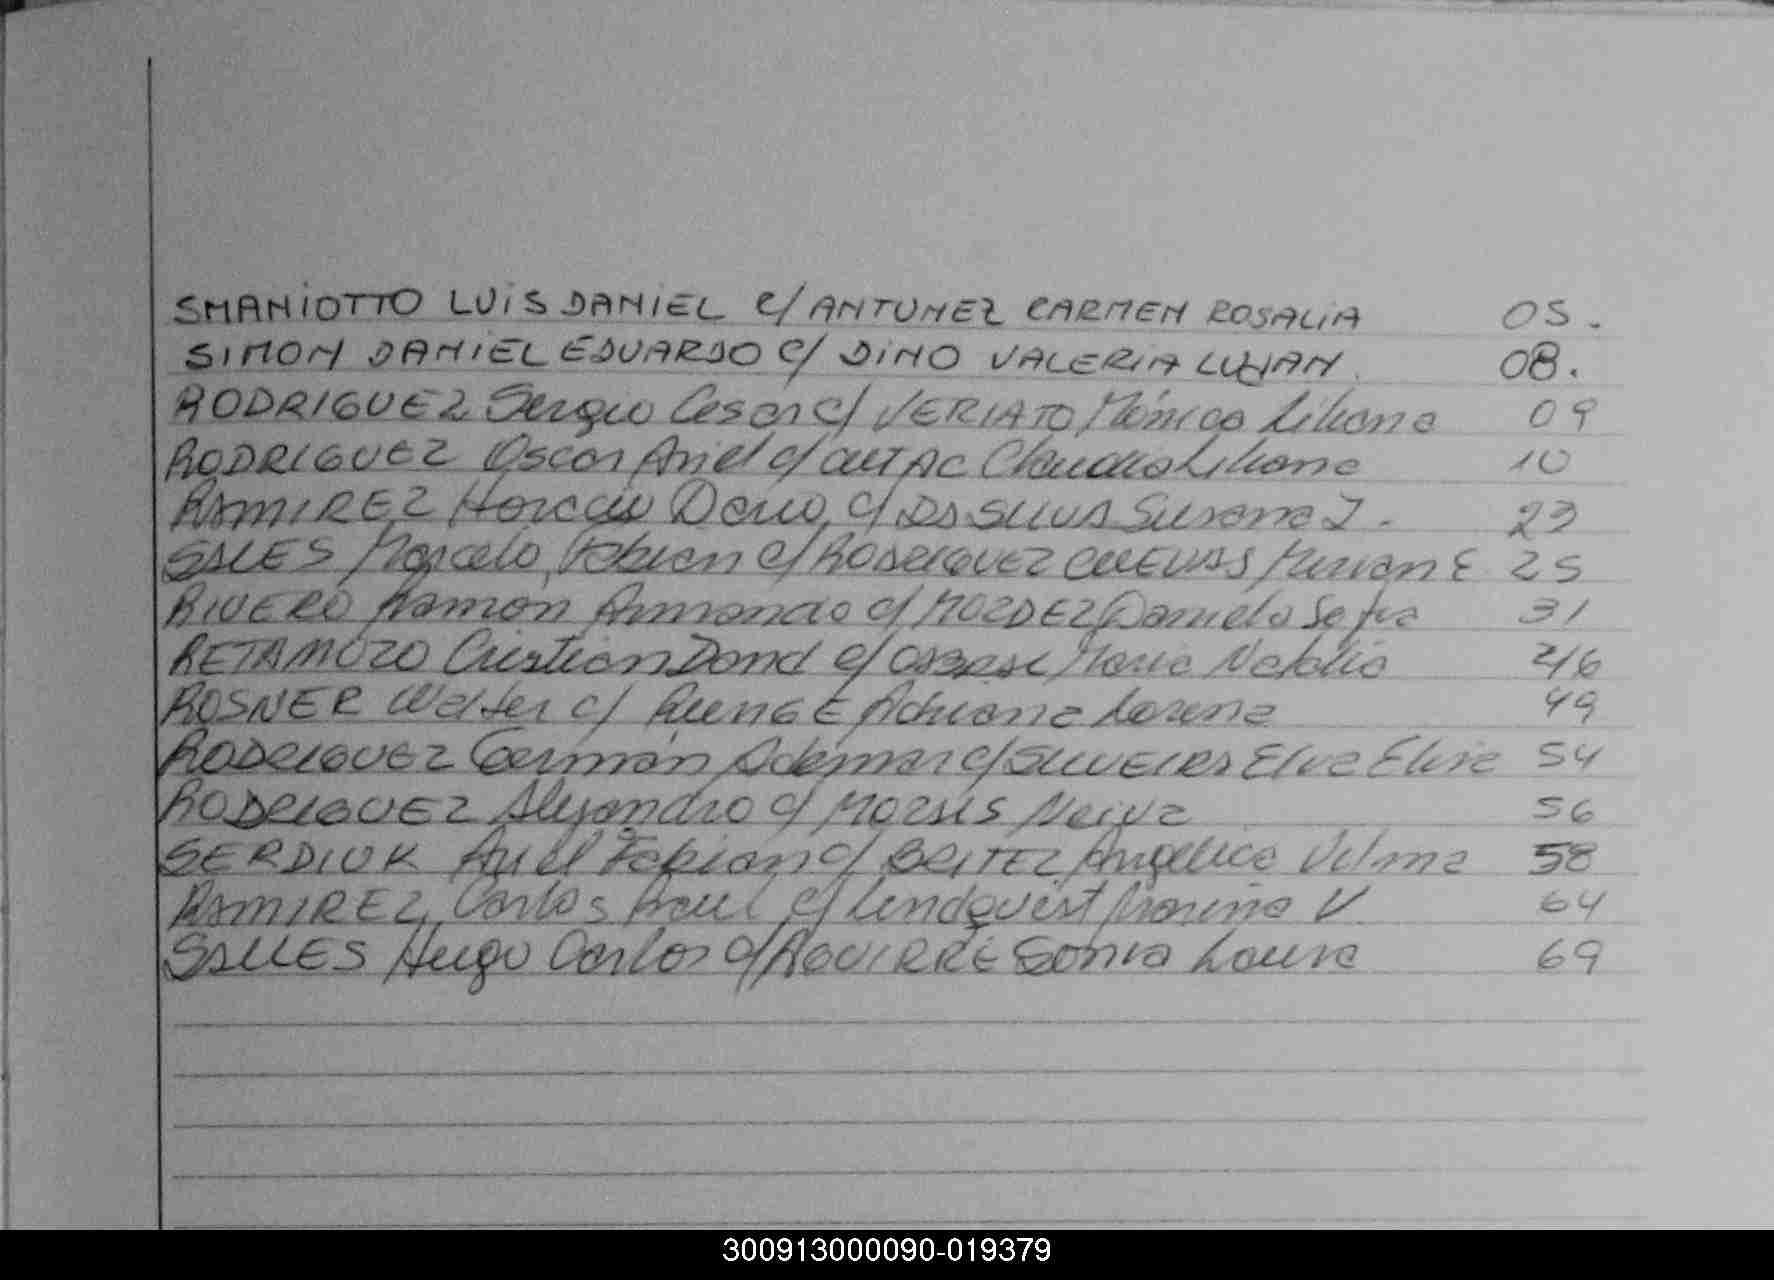 SMANIOTTO LUIS DANIEL C/ ANTUNEZ CARMEN ROSALIA 05.
SIMON DANIEL EDUARDO C/ DINO VALERIA LUJAN. 08.
RODRIGUEZ Sergio Cesar c/ VERIATO Mónica Liliana 09
RODRIGUEZ Oscar Ariel c/ Claudia Liliana 10
RAMIREZ Horacio Dario, c/ DA SILVA Susana I. 23
SALES Marcelo Fabian c/ RODRIGUEZ CUEVAS Mirian E 25
RIVERO Ramón Armando c/ Daniela Sofia 31
RETAMOZO Cristian c/ Maria Natalia 46
ROSNER Walter c/ RUNGE Adriana Lorena 49
RODRIGUEZ Germán Ademar c/ SILVEIRA Elva Elisa 54
RODRIGUEZ Alejandro c/ 56
SERDIUK Ariel Fabian c/ BRITEZ Angelica Vilma 58
RAMIREZ Carlos Raul c/ Lindquist Marina V. 64
SALLES Hugo Carlos c/ AGUIRRE Sonia Laura 69
300913000090-019379